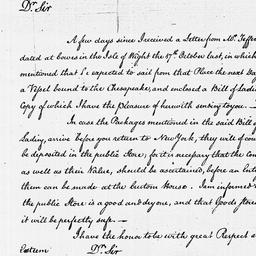 Dr. Sir
A few days since I received a Letter from Mr. Jeffer
dated at Cowes in the Isle of Wight the 17th October last, in which
mentioned that he expected to sail from that Place the next Day
a Vessel bound to the Chesapeake, and enclosed a Bill of Lading
Copy of which I have the pleasure of herewith sending to you. —
In case the Packages mentioned in the said Bill of
Lading, arrive before you return to New York, they will of cour
be deposited in the public Store; for it is necessary that the Con
as well as their Value, should be ascertained, before an Entr
them can be made at the Custom House. I am informed
the public Store is a good and dry one, and that Goods stor
it will be perfectly safe. —
I have the honor to be with great Respect a
Esteem Dr. Sir